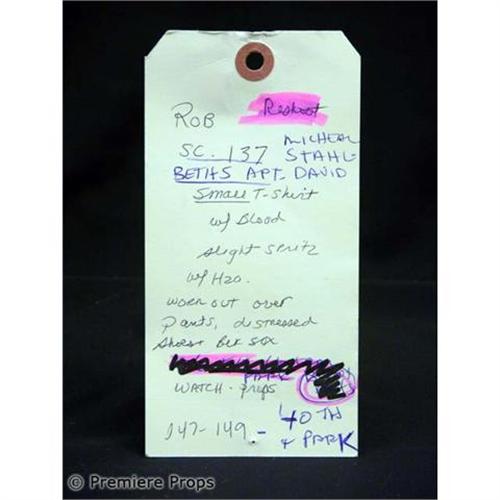 ROB Reshoot
SC. 137 MICHEAL STAHL-
BETHS APT. DAVID
Small T-shirt
w/ Blood
slight spritz
w/ H2O.
worn out over
pants, distressed
shoes Belt sox
PARK
WATCH - props
147-149 - 40TH
+ PARK
© Premiere Props